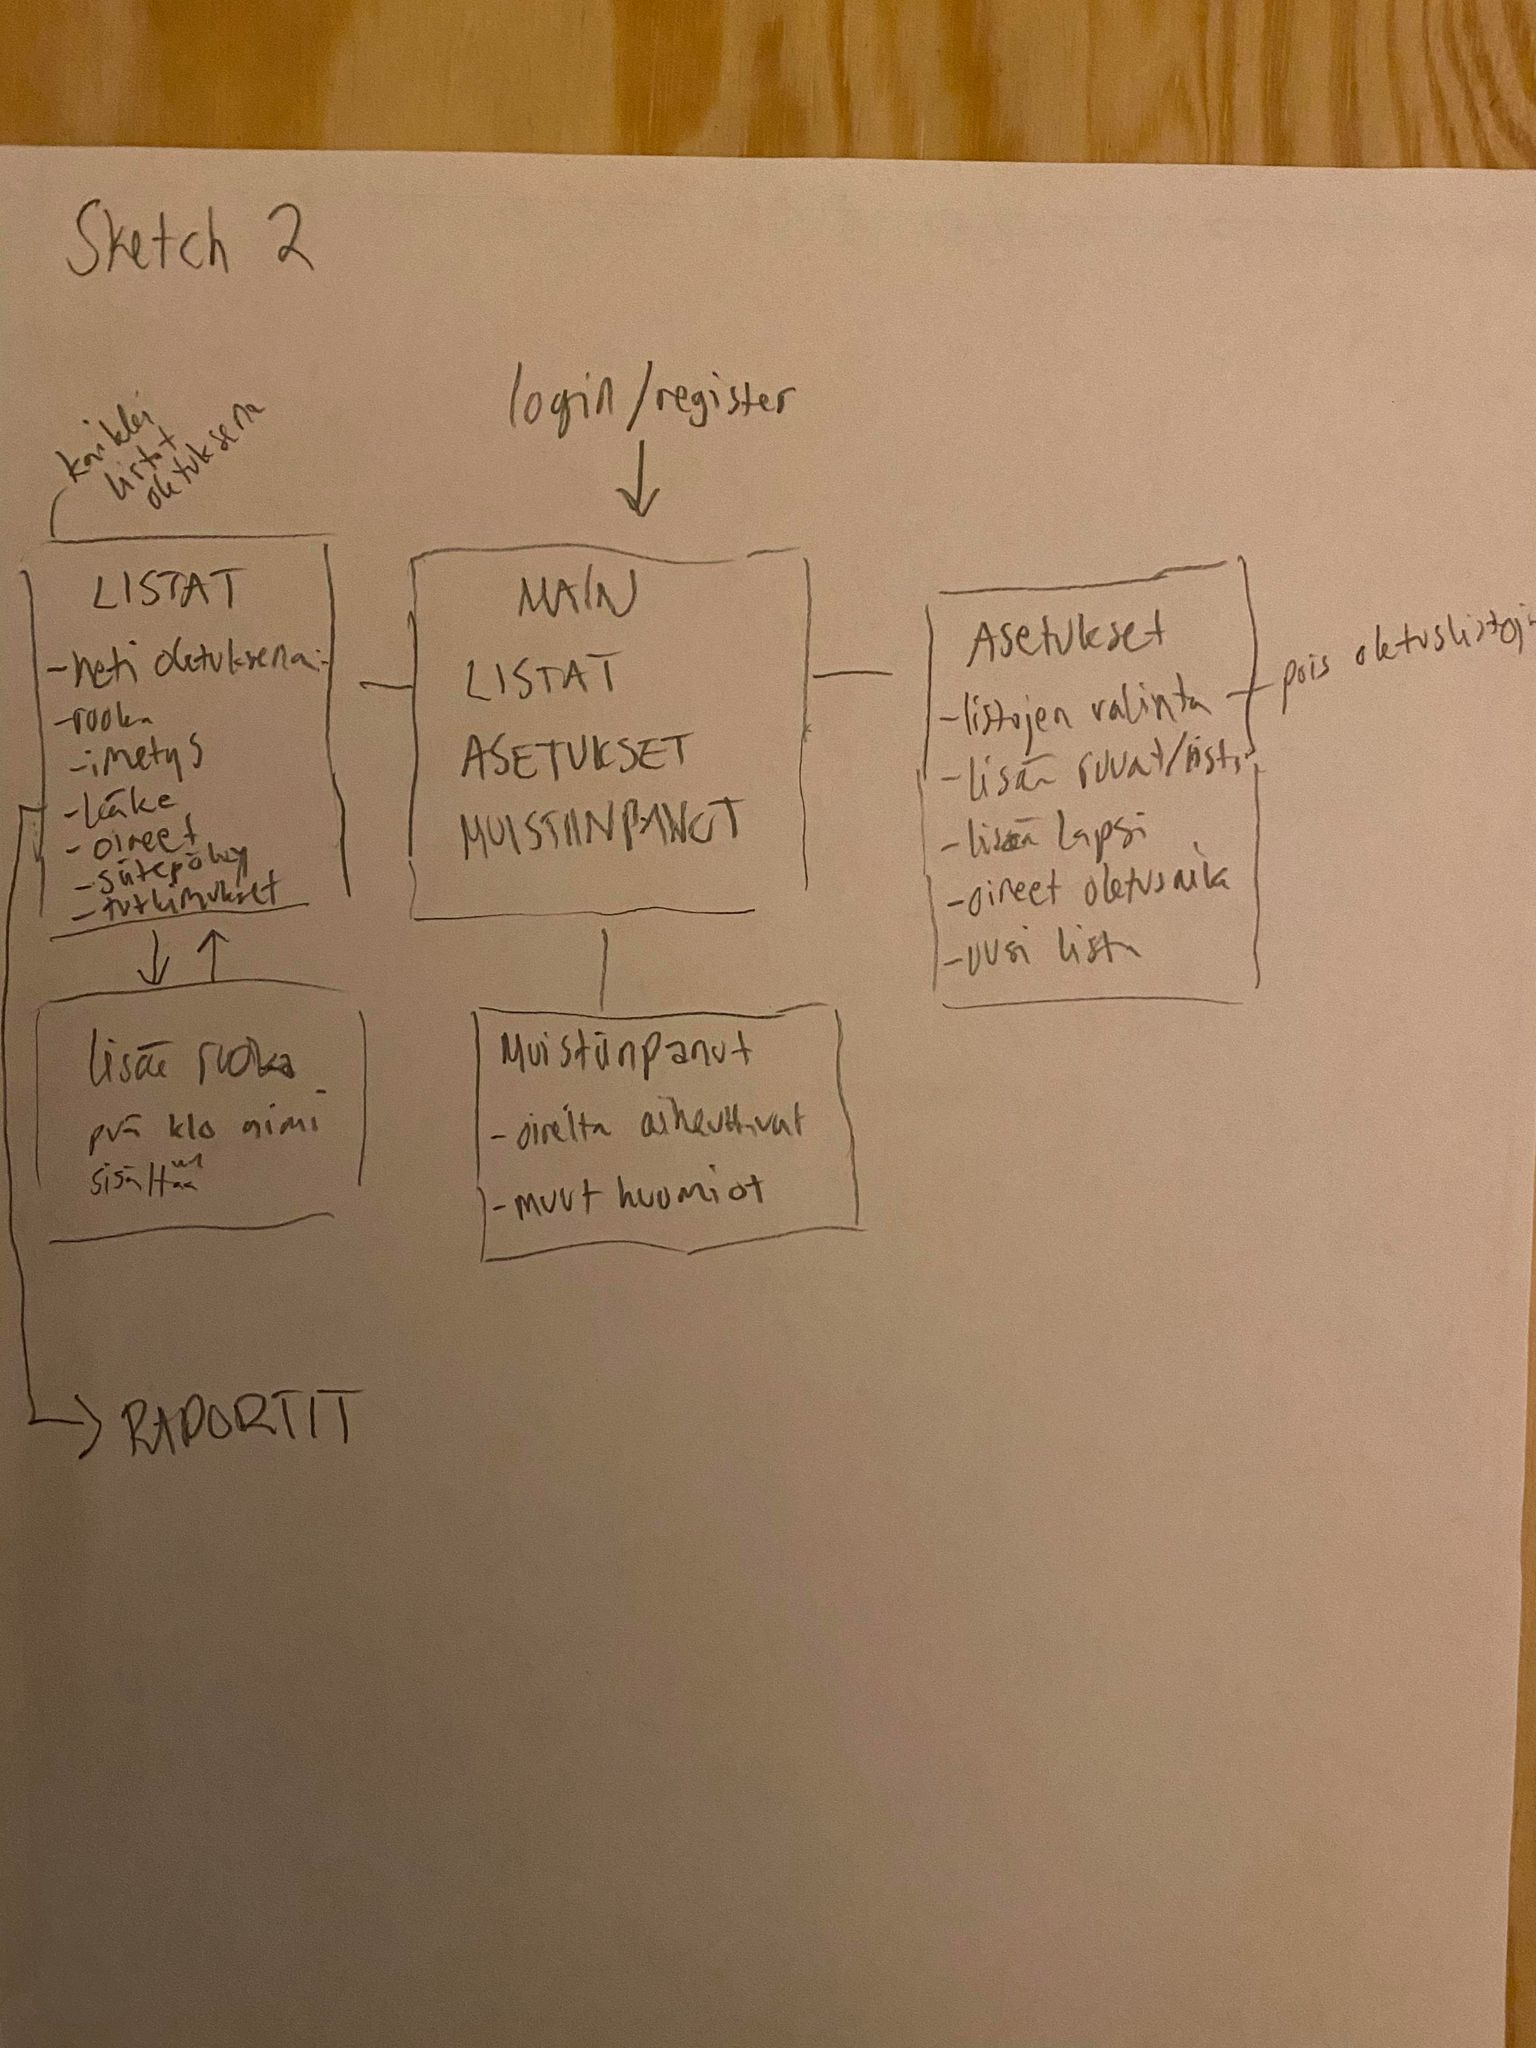 Sketch 2
login/register
kaikki
listat
oletuksena
LISTAT
-heti oletuksena:
-ruoka
-imetys
-lääke
-oireet
-siitepöly
-tutkimukset
MAIN
LISTAT
ASETUKSET
MUISTIINPANOT
Asetukset
-listojen valinta
pois oletuslistoj
-lisää ruuat/
-lisää lapsi
-oireet oletusaika
-uusi lista
lisää ruoka
pvä klo nimi
Muistiinpanot
-oireita aiheuttivat
-muut huomiot
RAPORTIT